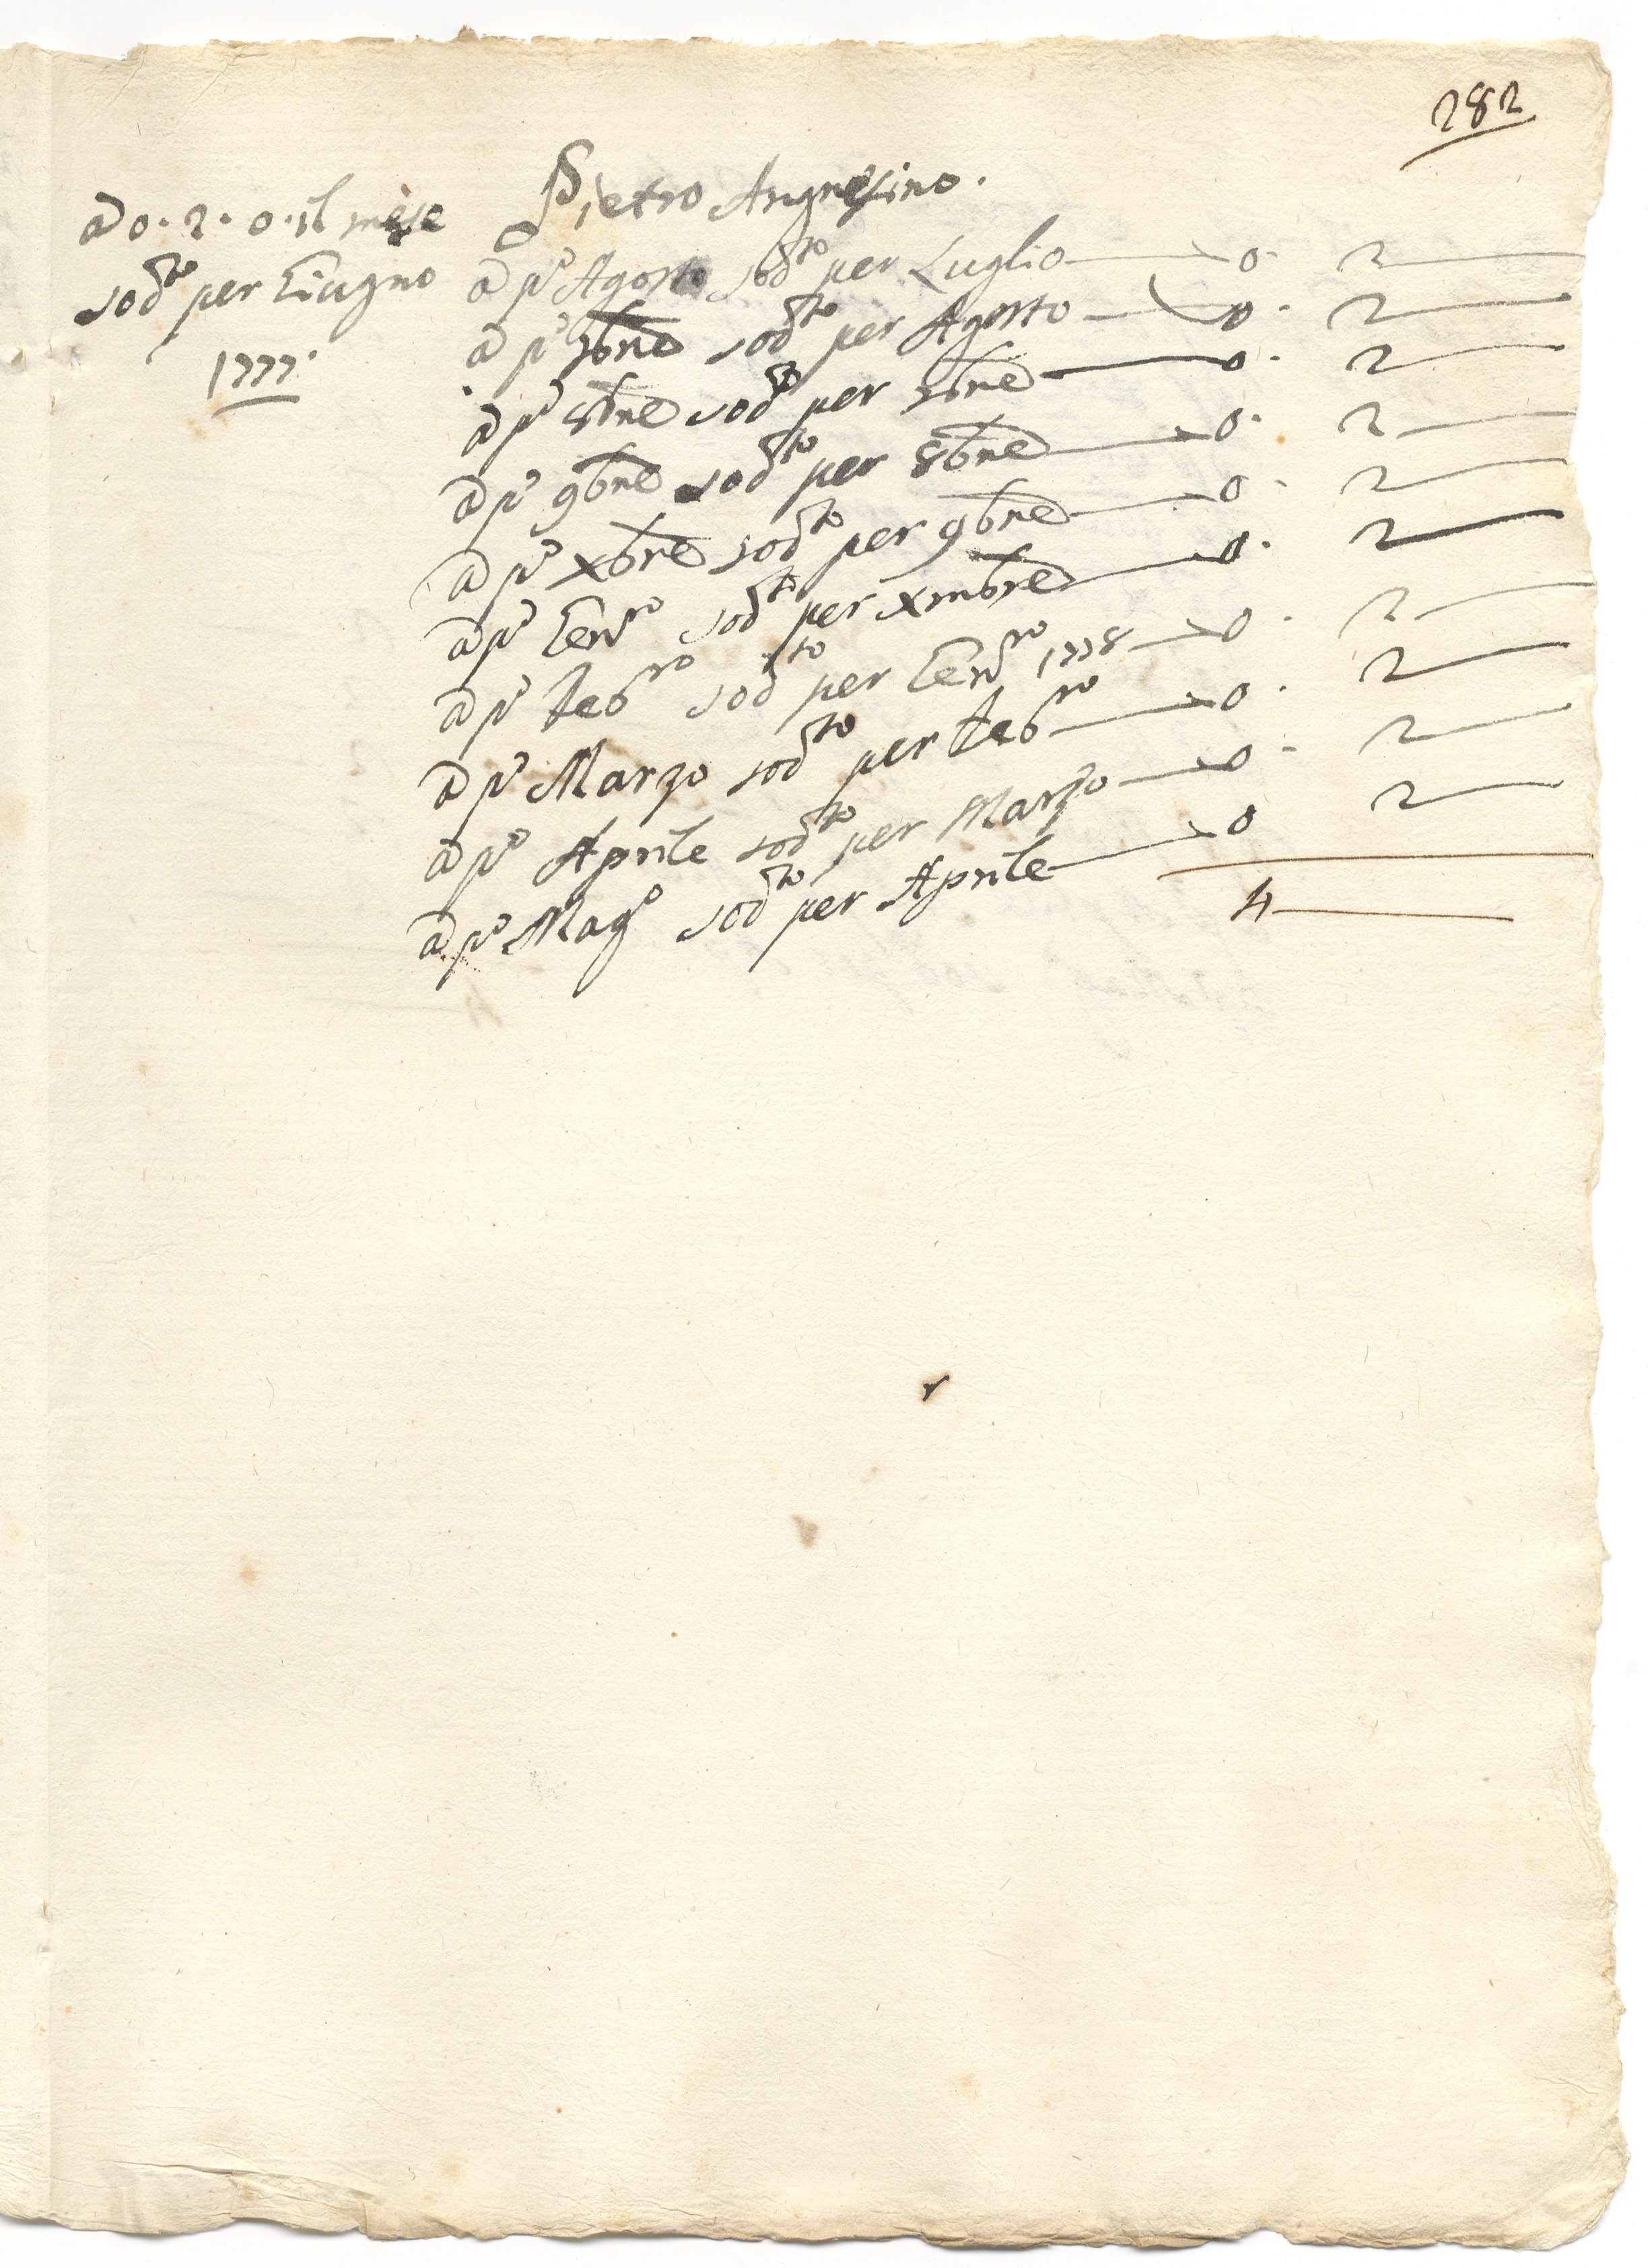 282
Pietro Angresino.
a 0. 2. 0. il mese
sodto per Giugno
1777.
a po Agosto sodto per Luglio — 0. 2 —
a po 7bre sodto per Agosto — 0. 2 —
a po 8bre sodto per 7bre — 0. 2 —
a po 9bre sodto per 8bre — 0. 2 —
a po xbre sodto per 9bre — 0. 2 —
a po Genro sodto per xmbre — 0. 2 —
a po Febro sodto per Genro 1778 — 0. 2 —
a po Marzo sodto per Febro — 0. 2 —
a po Aprile sodto per Marzo — 0. 2 —
a po Mago sodto per Aprile — 0 2 —
4 —